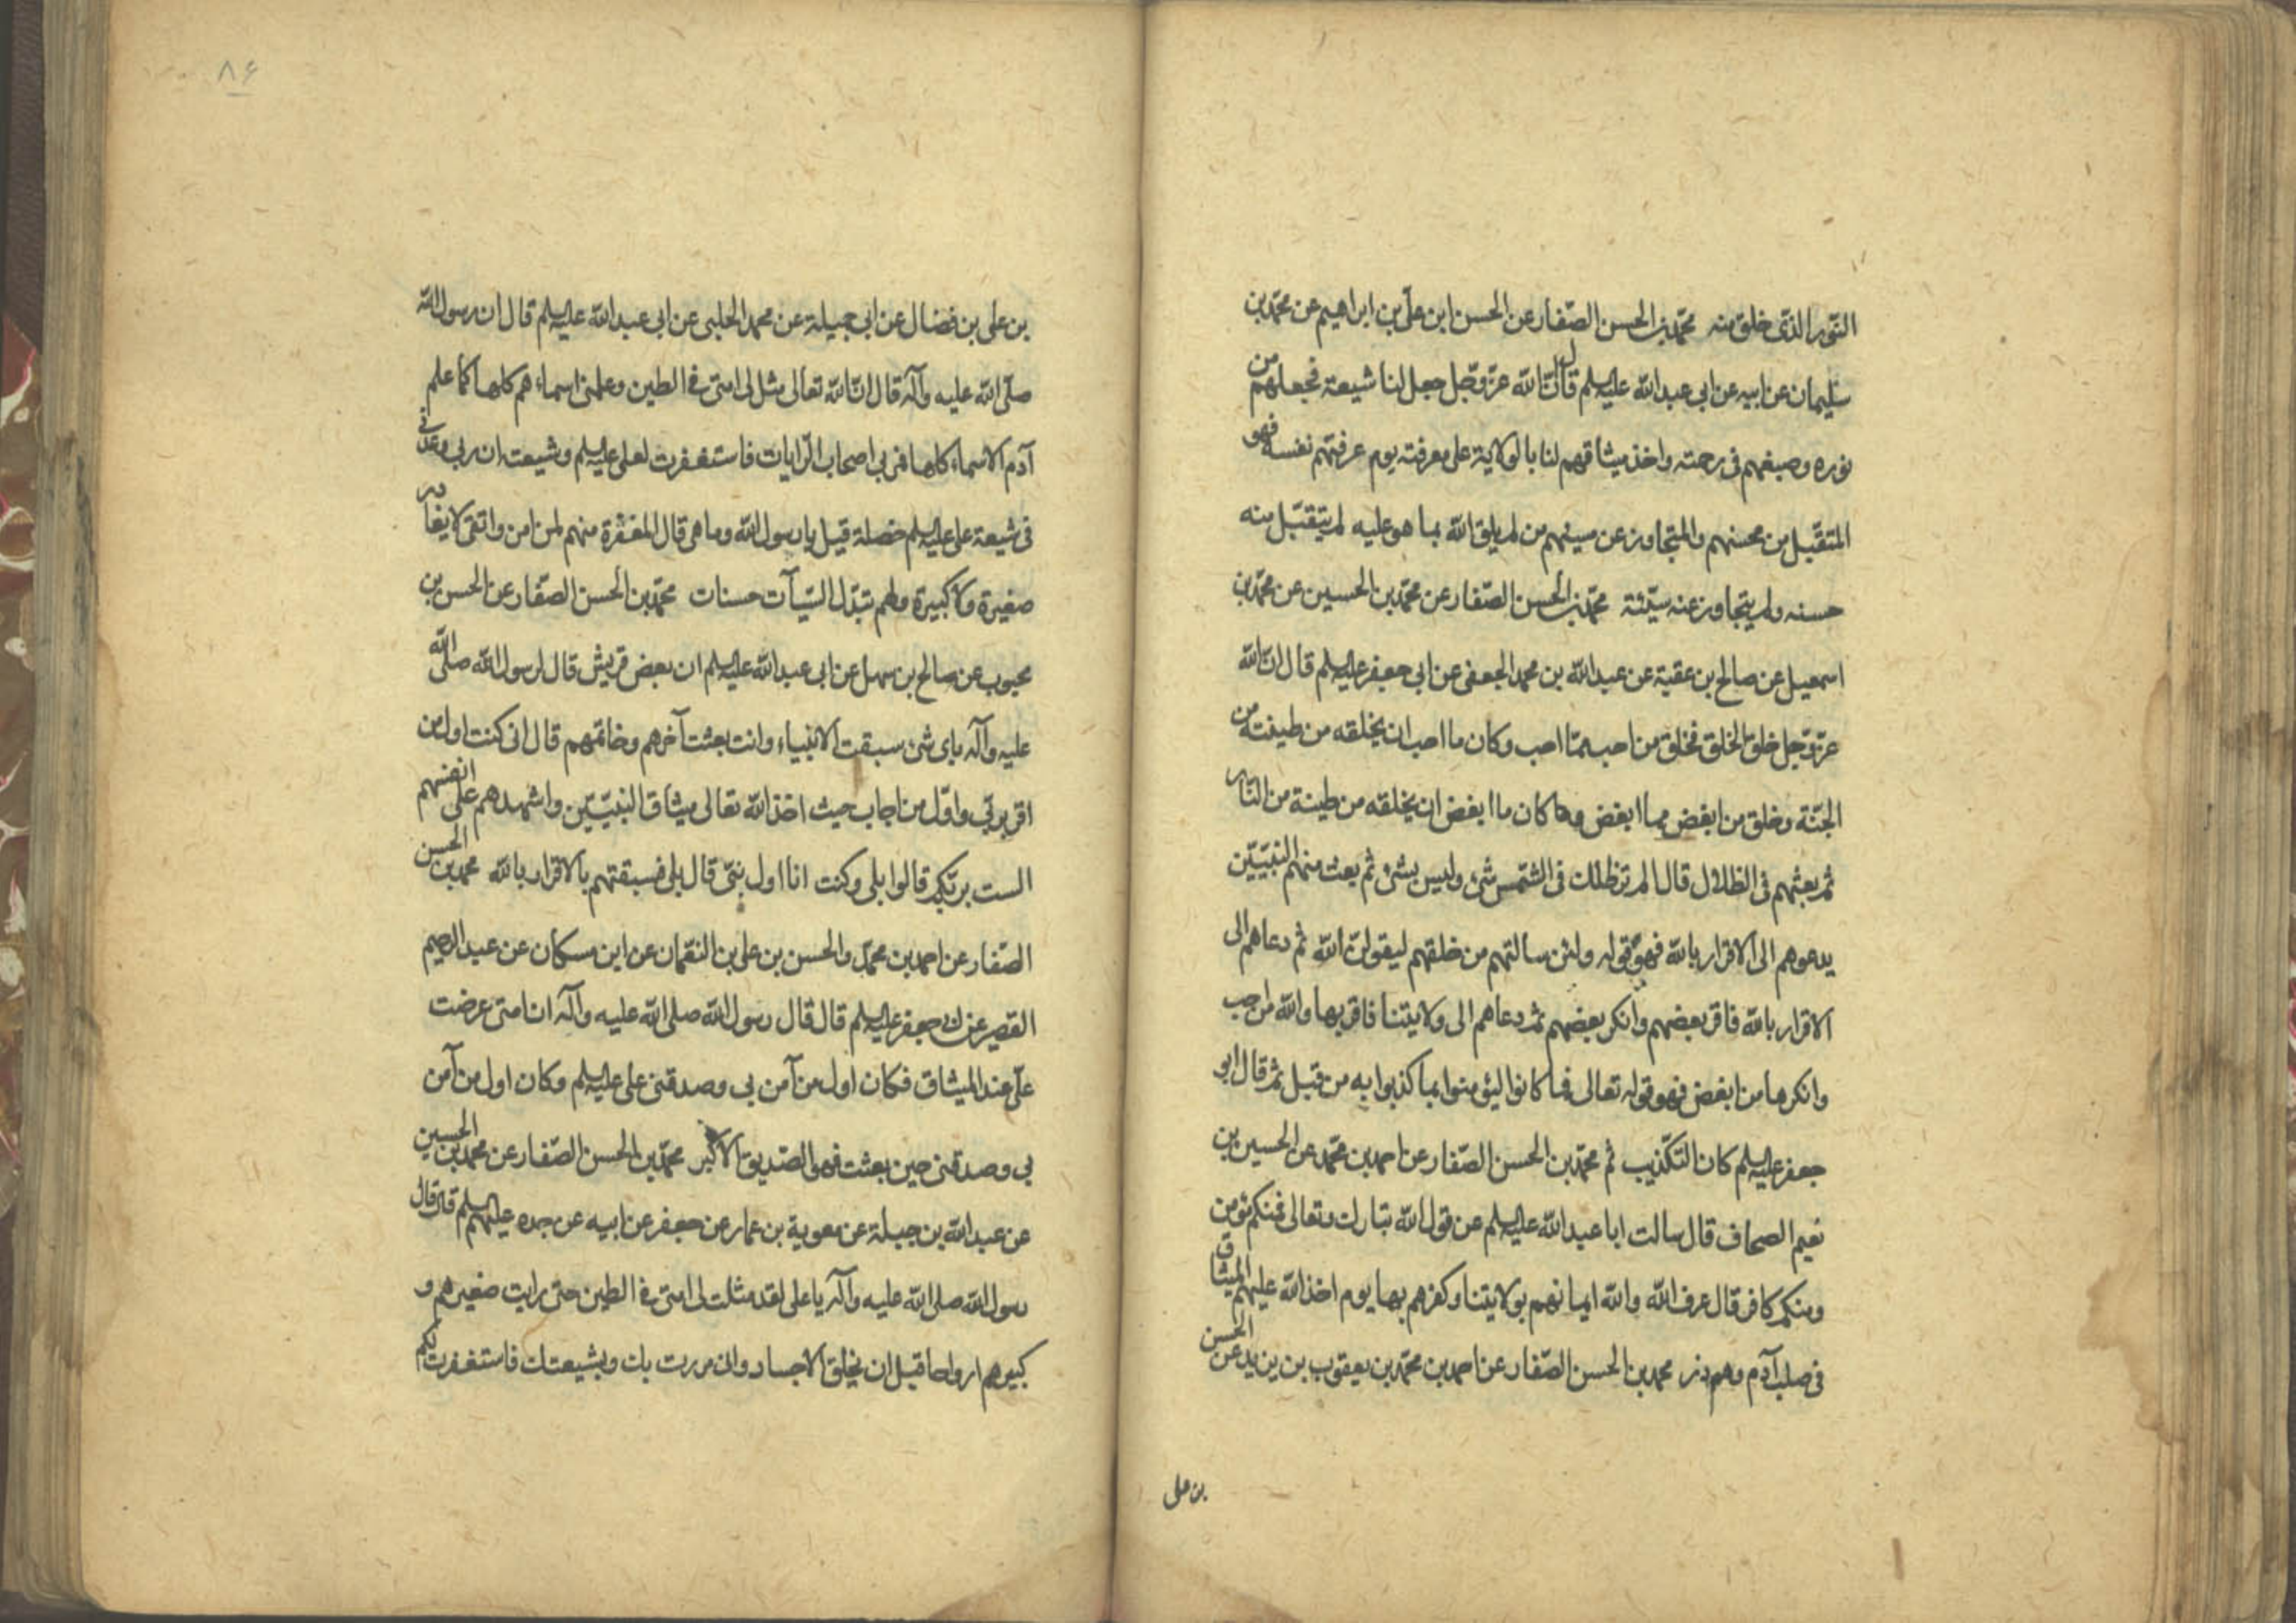 النور الذى خلق منه محمد بن الحسن الصفار عن الحسن ابن على بن ابراهيم عن محمد بن
سليمان عن ابيه عن ابى عبدالله عليه السلم قال ان الله عز وجل جعل لنا شيعة فجعلهم من
نوره وصبغهم فى رحمته واخذ ميثاقهم لنا بالولاية على معرفته يوم عرفهم نفسه فهو
المتقبل من محسنهم والمتجاوز عن مسيئهم من لم يلق الله بما هو عليه لم يتقبل منه
حسنه ولم يتجاوز عنه سيئة محمد بن الحسن الصفار عن محمد بن الحسين عن محمد بن
اسمعيل عن صالح بن عقبة عن عبدالله بن محمد الجعفى عن ابى جعفر عليه السلم قال ان الله
عز وجل خلق الخلق فخلق من احب مما احب وكان ما احب ان يخلقه من طينة من
الجنة وخلق من ابغض مما ابغض وكان ما ابغض ان يخلقه من طينة من النار
ثم بعثهم فى الظلال قال الم تر ظلك فى الشمس شىء وليس بشىء ثم بعث منهم النبيين
يدعوهم الى الاقرار بالله فهو قوله ولئن سالتهم من خلقهم ليقولن الله ثم دعاهم الى
الاقرار بالله فاقر بعضهم وانكر بعضهم ثم دعاهم الى ولايتنا فاقر بها والله من احب
وانكرها من ابغض فهو قوله تعالى فما كانوا ليؤمنوا بما كذبوا به من قبل ثم قال ابو
جعفر عليه السلم كان التكذيب ثم محمد بن الحسن الصفار عن احمد بن محمد عن الحسين بن
نعيم الصحاف قال سالت ابا عبدالله عليه السلم عن قول الله تبارك وتعالى فمنكم مؤمن
ومنكم كافر قال عرف الله والله ايمانهم بولايتنا وكفرهم بها يوم اخذ الله عليهم الميثاق
فى صلب آدم وهم ذر محمد بن الحسن الصفار عن احمد بن محمد بن يعقوب بن يزيد عن الحسن
بن على
۸۶
بن على بن فضال عن ابى جميلة عن محمد الحلبى عن ابى عبدالله عليه السلم قال ان رسول الله
صلى الله عليه وآله قال ان الله تعالى مثل لى امتى فى الطين وعلمنى اسماءهم كلها كما علم
آدم الاسماء كلها فمر بى اصحاب الرايات فاستغفرت لعلى عليه السلم وشيعته ان ربى وعدنى
فى شيعة على عليه السلم خصلة قيل يا رسول الله وما هى قال المغفرة منهم لمن امن واتقى لا يغادر
صغيرة ولا كبيرة ولهم تبدل السيآت حسنات محمد بن الحسن الصفار عن الحسن بن
محبوب عن صالح بن سهل عن ابى عبدالله عليه السلم ان بعض قريش قال لرسول الله صلى الله
عليه وآله باى شىء سبقت الانبياء وانت بعثت آخرهم وخاتمهم قال انى كنت اول من
اقر بربى واول من اجاب حيث اخذ الله تعالى ميثاق النبيين واشهدهم على انفسهم
الست بربكم قالوا بلى وكنت انا اول نبى قال بلى فسبقتهم بالاقرار بالله محمد بن الحسن
الصفار عن احمد بن محمد والحسن بن على بن النعمان عن ابن مسكان عن عبد الرحيم
القصير عن ابى جعفر عليه السلم قال قال رسول الله صلى الله عليه وآله ان امتى عرضت
على عند الميثاق فكان اول من آمن بى وصدقنى على عليه السلم وكان اول من آمن
بى وصدقنى حين بعثت فهو الصديق الاكبر محمد بن الحسن الصفار عن محمد بن الحسين
عن عبدالله بن جبلة عن معوية بن عمار عن جعفر عن ابيه عن جده عليهم السلم قال قال
رسول الله صلى الله عليه وآله يا على لقد مثلت لى امتى فى الطين حتى رايت صغيرهم و
كبيرهم ارواحا قبل ان يخلق الاجساد وانى مررت بك وبشيعتك فاستغفرت لكم